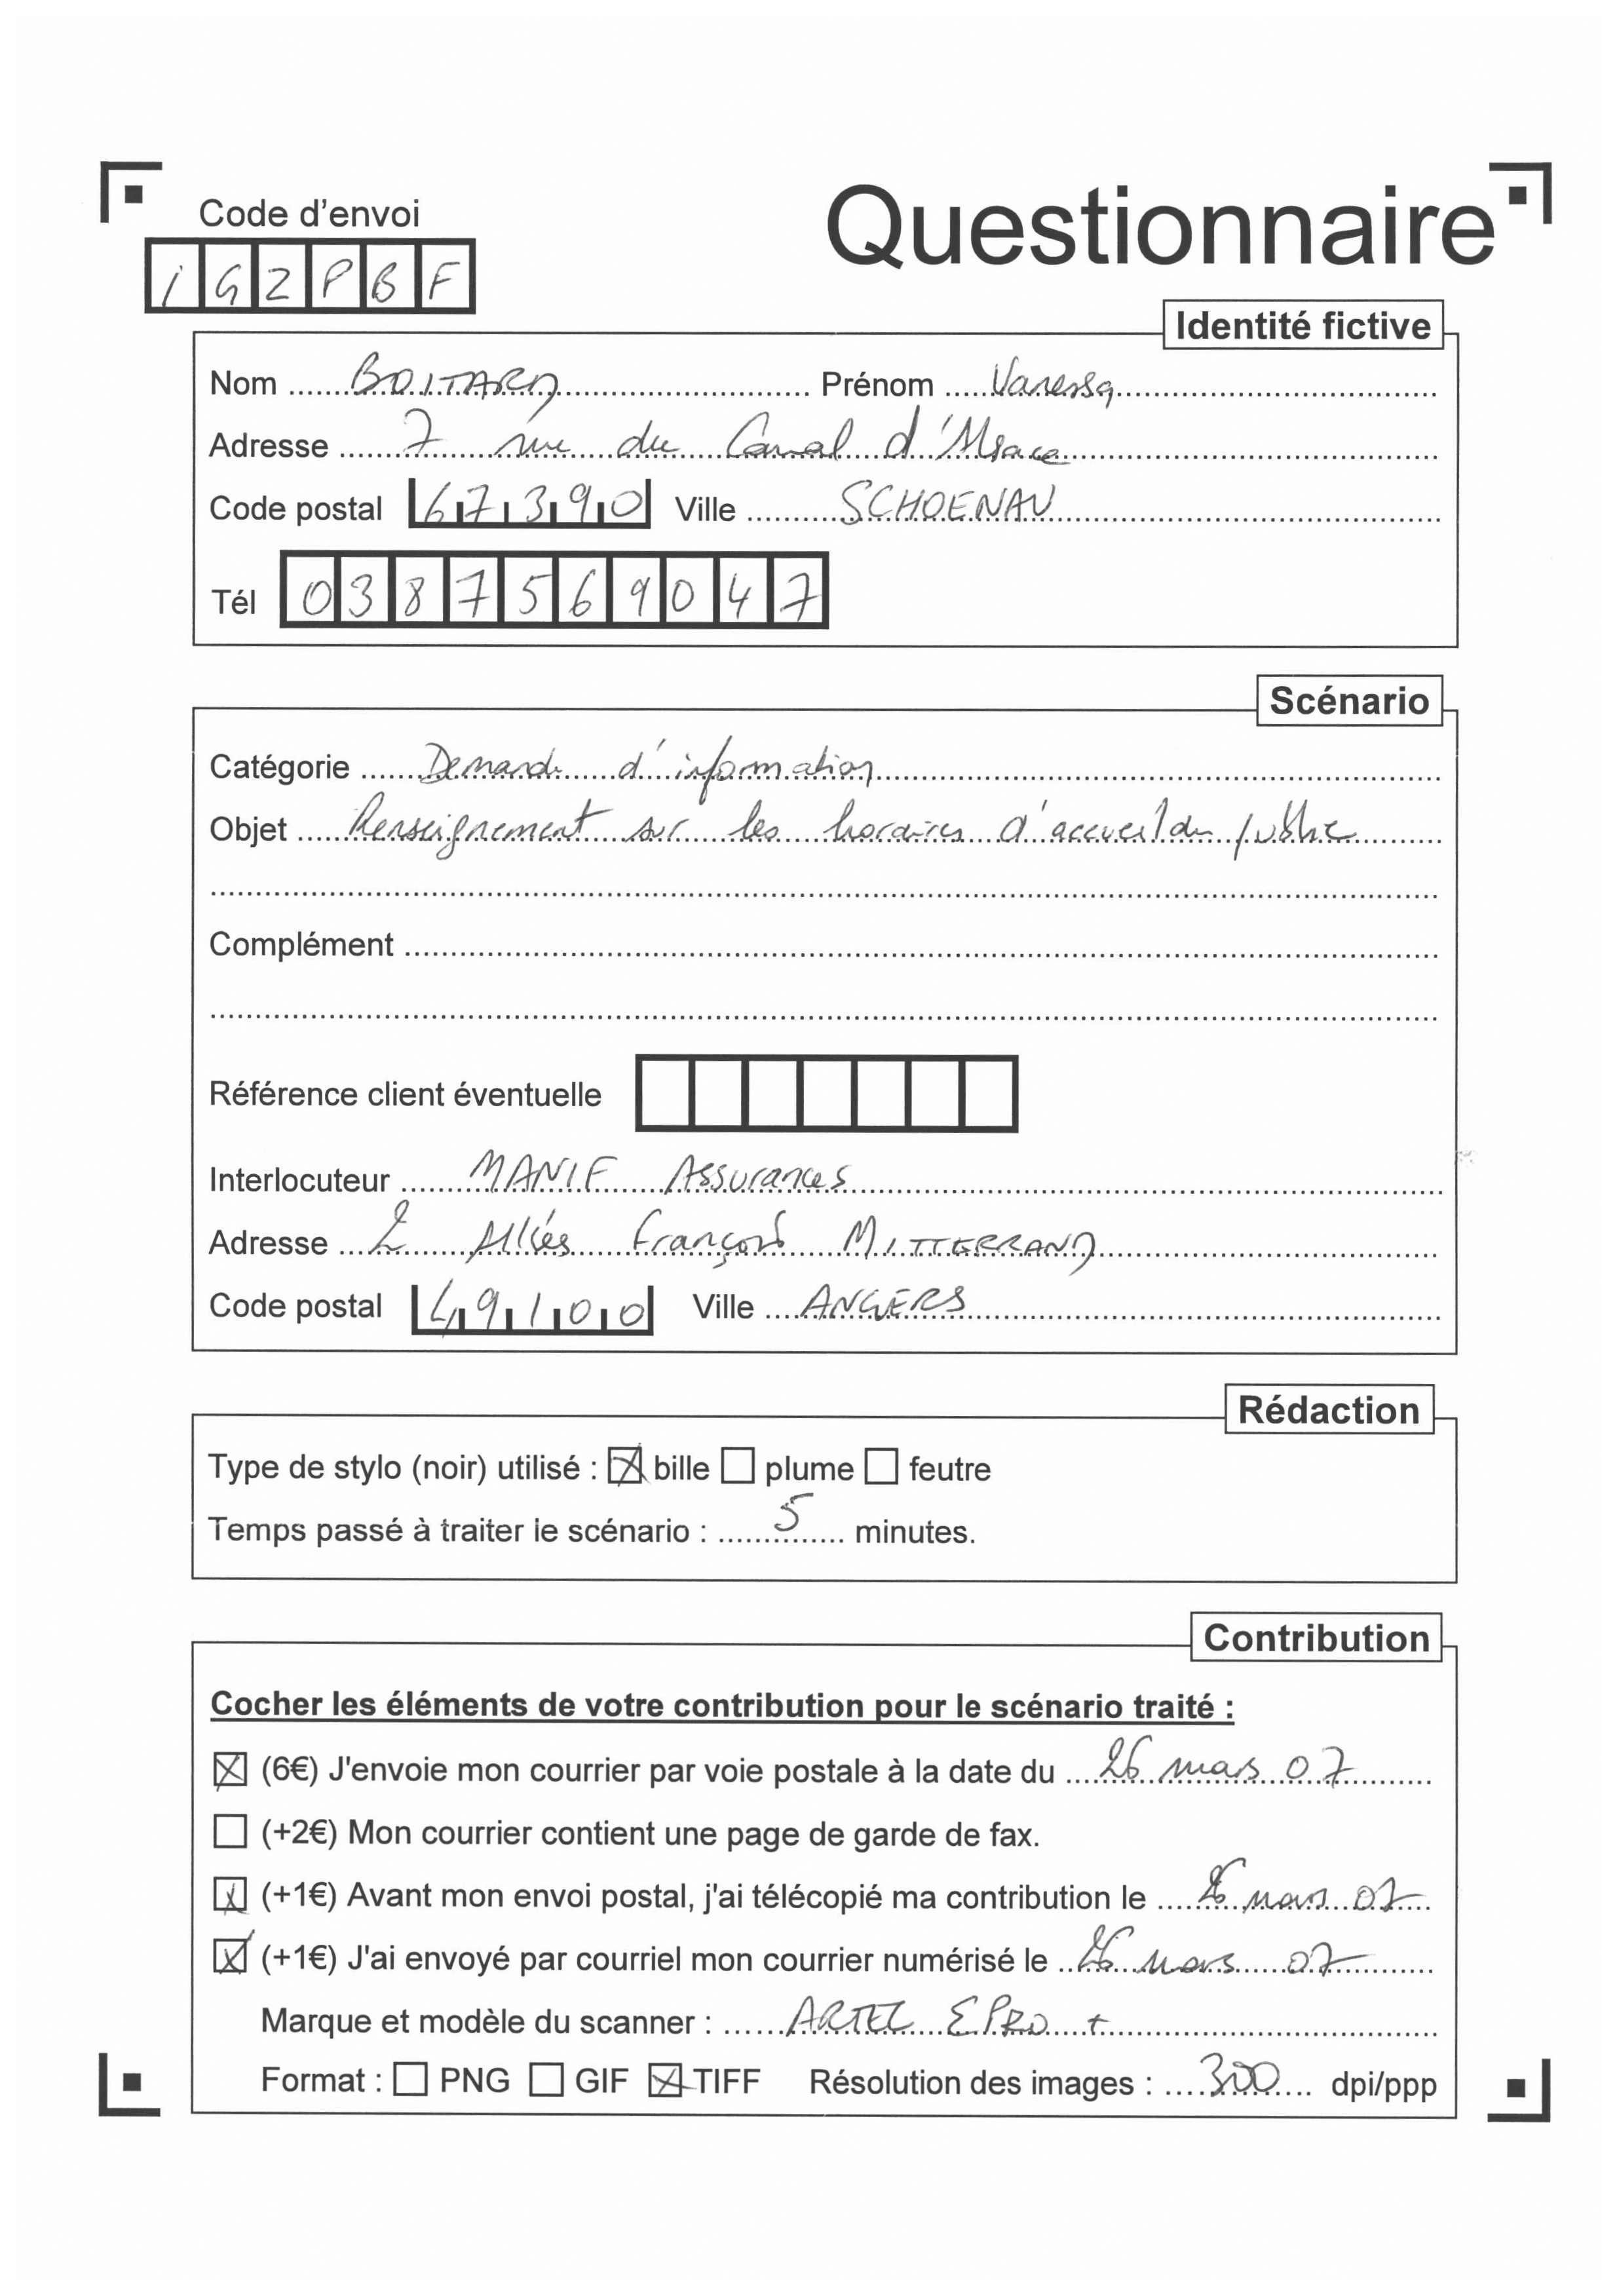 Code d'envoi
Questionnaire
iGZPBF
Identité fictive
Nom BOITARD Prénom Vanessa
Adresse 7 rue du Canal d'Alsace
Code postal 67390 Ville SCHOENAU
Tél 0387569047
Scénario
Catégorie Demande d'information
Objet Renseignement sur les horaires d'accueil du public
Complément
Référence client éventuelle
Interlocuteur MANIF Assurances
Adresse 2 Allées François MITTERRAND
Code postal 49100 Ville ANGERS
Rédaction
Type de stylo (noir) utilisé : bille plume feutre
Temps passé à traiter le scénario : 5 minutes.
Contribution
Cocher les éléments de votre contribution pour le scénario traité :
(6€) J'envoie mon courrier par voie postale à la date du 26 mars 07
(+2€) Mon courrier contient une page de garde de fax.
(+1€) Avant mon envoi postal, j'ai télécopié ma contribution le 26 mars 07
(+1€) J'ai envoyé par courriel mon courrier numérisé le 26 mars 07
Marque et modèle du scanner : ARTEC EPRO +
Format : PNG GIF TIFF Résolution des images : 300 dpi/ppp